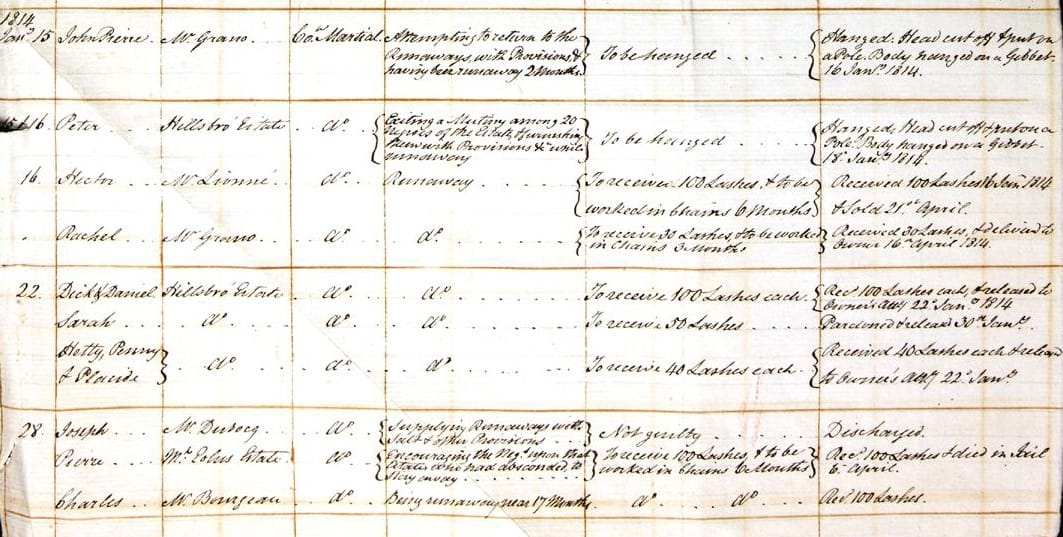 1814
Jany. 15 John Pierre. Mr. Grano. Co. Martial. Attempting to return to the Runaways, with Provisions, & having been runaway 2 Months. To be hanged Hanged. Head cut off & put on a Pole. Body hanged on a Gibbet. 16 Jany. 1814.
15 & 16 Peter Hillsbro' Estate do. Exciting a Mutiny among 20 Negroes of the Estate, & furnishing them with Provisions &c. while runaway To be hanged Hanged, Head cut off & put on a Pole. Body hanged on a Gibbet. 18 Jany. 1814.
16. Hector Mr. Lionné. do. Runaway To receive 100 Lashes, & to be worked in Chains 6 Months Received 100 Lashes 16 Jany. 1814 & Sold 21st. April.
Rachel Mr. Grano. do. do. To receive 30 Lashes, & to be worked in Chains 3 Months Received 30 Lashes, & delivered to Owner 16 April 1814.
22. Dick & Daniel Hillsbro' Estate do. do. To receive 100 Lashes each. Recd. 100 Lashes each, & released to Owner's Atty. 22d. Jany. 1814
Sarah do. do. do. To receive 50 Lashes Pardoned & released 30th Jany.
Hetty, Penny & Placide do. do. do. To receive 40 Lashes each. Received 40 Lashes each & released to Owner's Atty. 22d. Jany.
28. Joseph Mr. Durocq. do. Supplying Runaways with Salt & other Provisions Not guilty Discharged.
Pierre Mrs. Eolus Estate. do. Encouraging the Negs. upon that Estate who had absconded, to stay away To receive 100 Lashes, & to be worked in Chains 6 Months Recd. 100 Lashes & died in Jail 6 April.
Charles Mr. Bourgeau do. Being runaway near 17 Months. do. do. Recd. 100 Lashes.